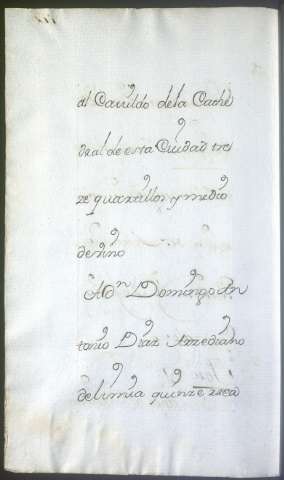 al Cavildo dela Cathe
dral de esta Ciudad tre
ze quartillos y medio
de vino
A Dn Domingo An
tonio Diaz Arzediano
de limia quinze